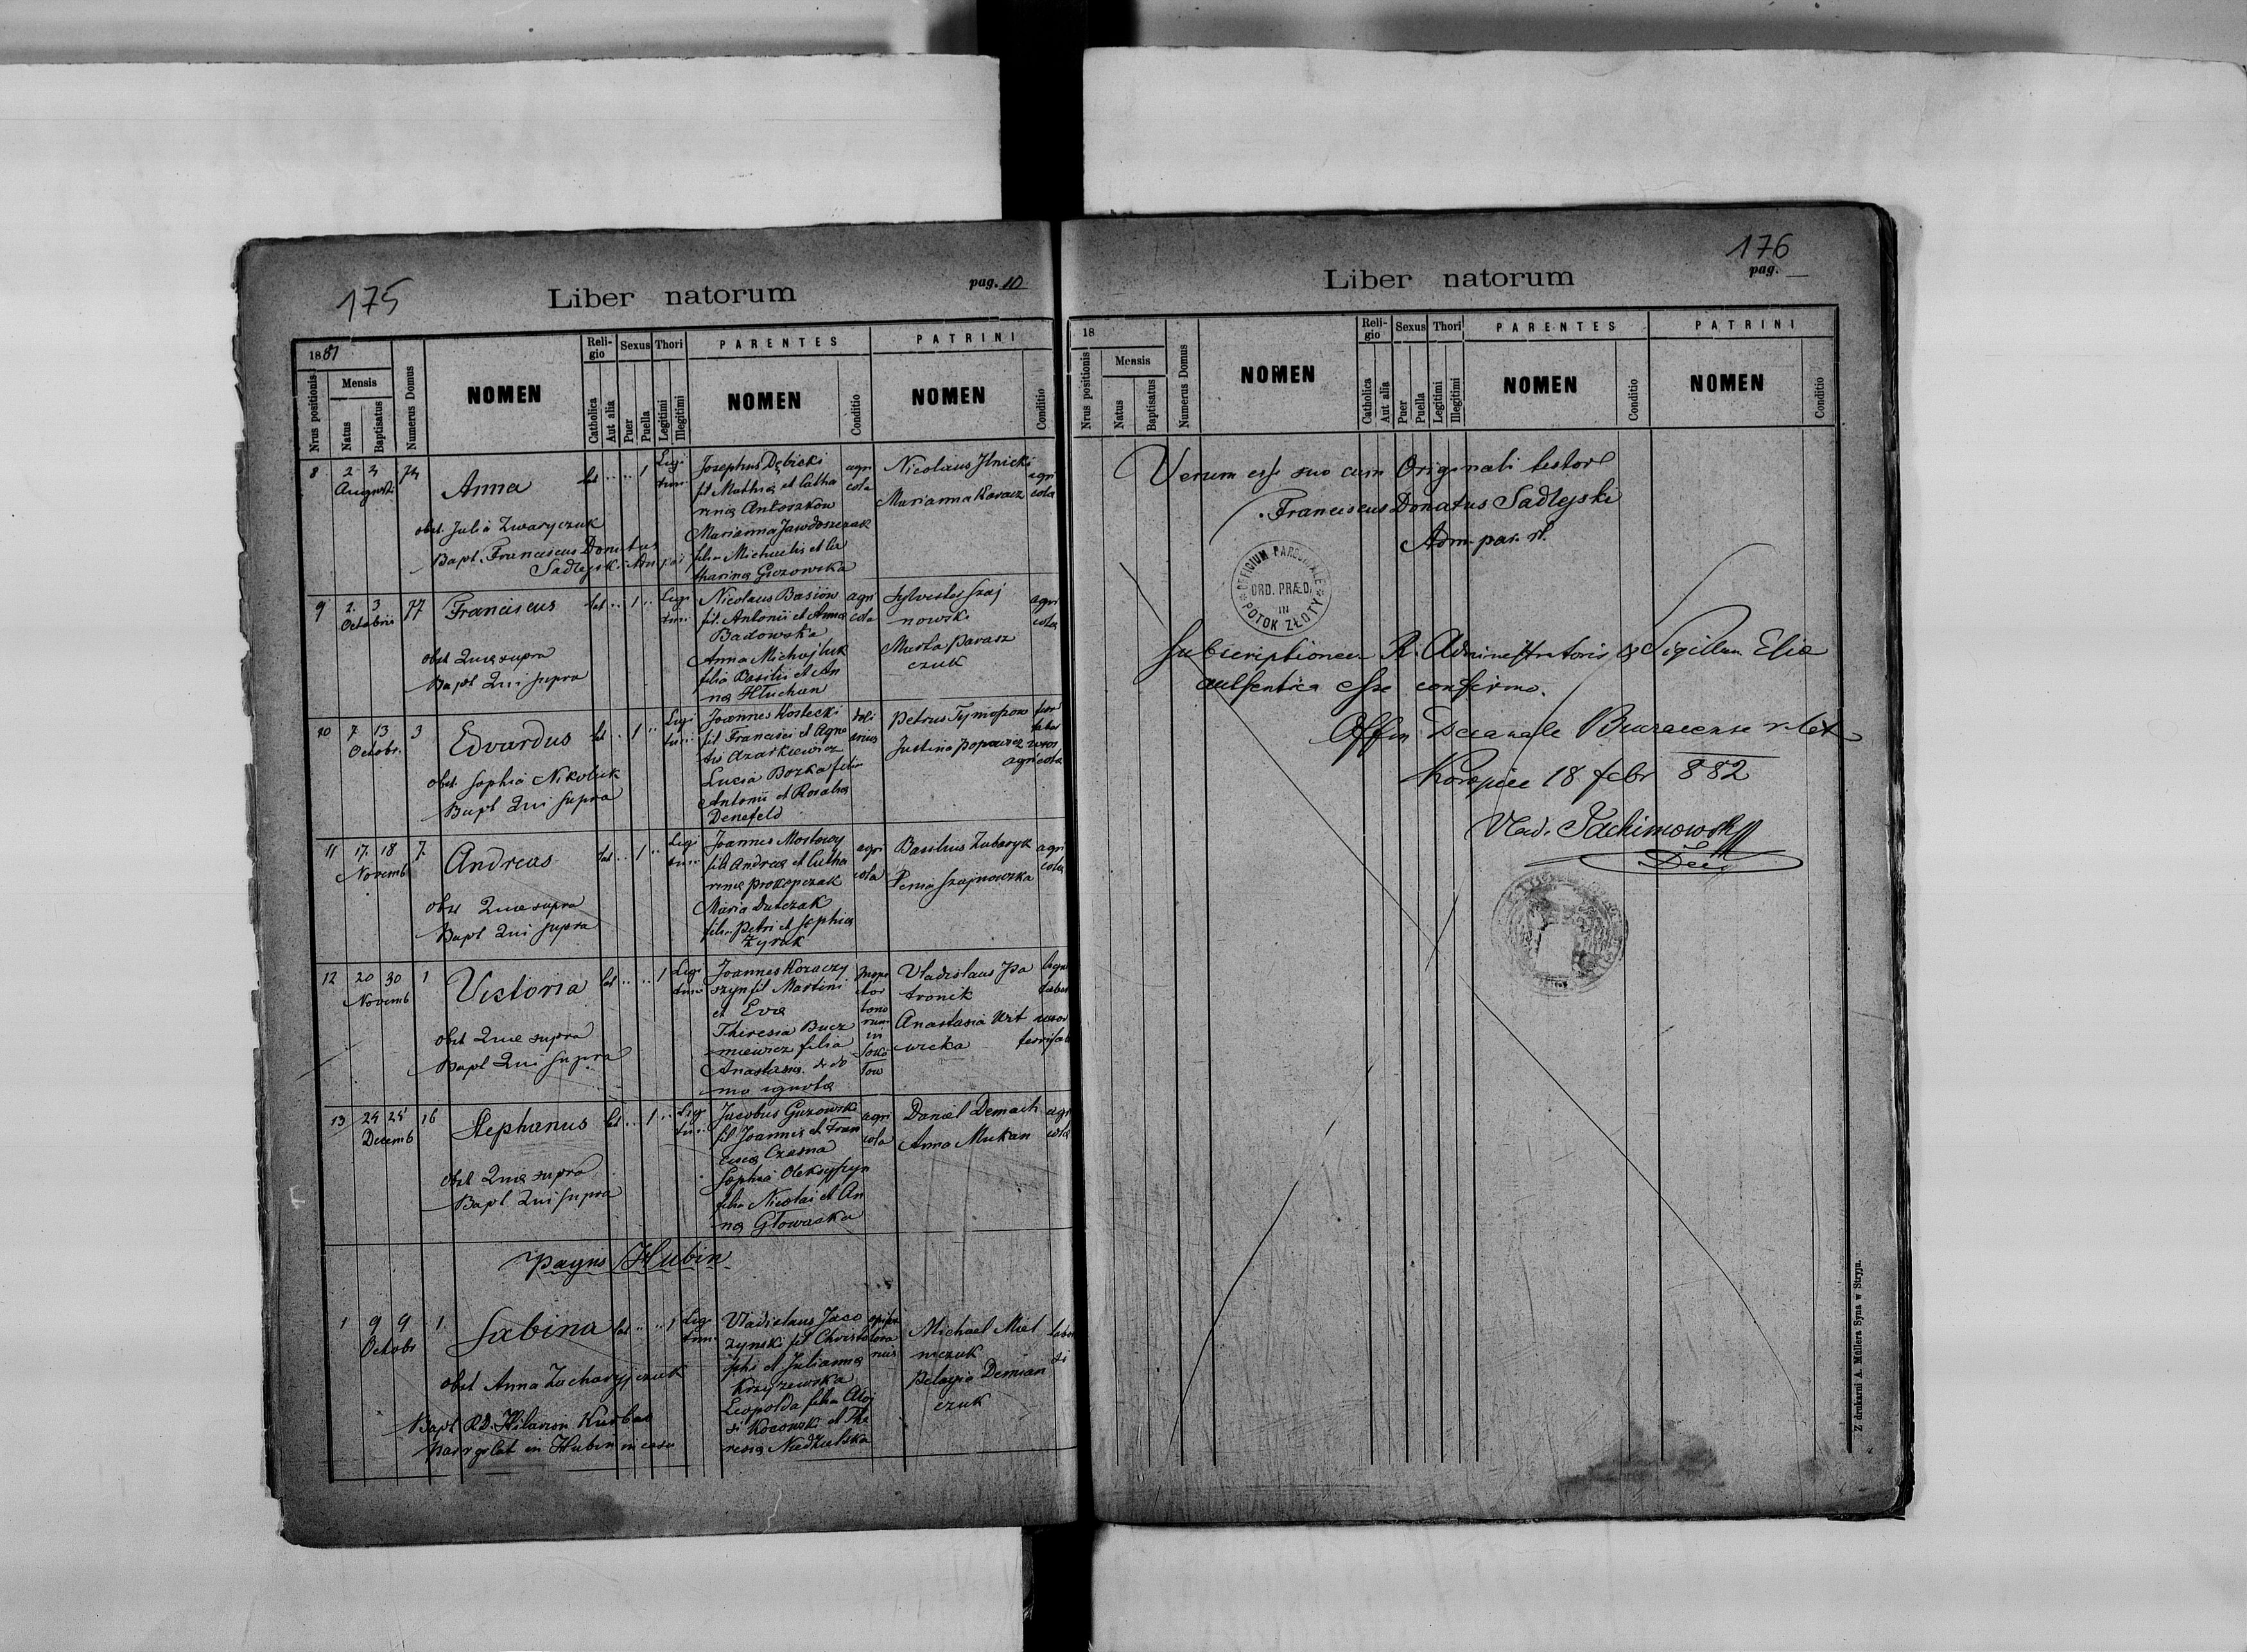 175
Liber natorum
pag. 10
1881
Nrus positionis
Mensis
Natus
Baptisatus
Numerus Domus
NOMEN
Religio
Catholica
Aut alia
Sexus
Puer
Puella
Thori
Legitimi
Illegitimi
PARENTES
NOMEN
Conditio
PATRINI
NOMEN
Conditio
8 2 3 Augusti
Anna
lat .. .. 1 Legi
timi
obst. Julia Zwaryczuk
Bapt. Franciscus Donatus
Sadlejski Adm. par
Josephus Dębicki
fil Mathiæ et Catha
rinæ Antoszków
Marianna Jawdoszczak
filia Michaelis et Ca
tharinæ Guzowska
agri
cola
Nicolaus Ilnicki
Marianna Karacz
agri
cola
9 2. 3 Octobris 77
Franciscus
lat .. 1 .. Legi
timi
obst Quæ supra
Bapt Qui supra
Nicolaus Basiów
fil. Antonii et Anna
Badowska
Anna Michajluk
filia Basilii et An
næ Hłuchan
agri
cola
Sylvester Szaj
nowski
Marta Parasz
czuk
agri
cola
10 7. 13 Octobr. 3
Edvardus
lat .. 1 .. Legi
timi
obst. Sophia Nikoluk
Bapt Qui supra
Joannes Kostecki
fil Francisci et Agne
tis Azarkiewicz
Lucia Bozka filia
Antonii et Rosaliæ
Denefeld
Petrus Tymofzow
Justina Popowicz
uxor
agricola
11 17. 18 Novemb 7.
Andreas
lat .. 1 .. Legi
timi
obst Quæ supra
Bapt Qui supra
Joannes Mostowy
fil. Andreæ et Catha
rinæ Prokopczak
Maria Dutczak
filia Petri et Sophiæ
Żyrak
agri
cola
Basilius Zubaryk
Szajnowska
agri
cola
12 20 30 Novemb 1
Victoria
lat .. .. 1 Legi
timi
obst Quæ supra
Bapt Qui supra
Joannes Kozaczy
szyn fil Martini
et Eva
Theresia Bucz
niewicz filia
Anastasiæ de do
mo ignota
Inspe
ctor
bono
rum
in
Soko
łow
Vladislaus Pa
tronik
Anastasia
uxor
13 24 25 Decemb 16
Stephanus
lat .. 1 .. Leg
timi
obst Quæ supra
Bapt Qui supra
Jacobus Guzowski
fil Joannis et Fran
ciscæ Czarna
Sophia Oleksyszyn
filia Nicolai et An
næ Głowacka
agri
cola
Daniel Demach
Anna Mukan
agri
cola
Pagus Hubin
1 9 9 Octobr 1.
Sabina
lat .. .. 1 Leg
timi
obst Anna Zacharyjczuk
Bapt RD. Hilarion Kurbas
par gr lat in Hubin in casu
Vladislaus Jaco
zynski fil Christo
phi et Julianna
Krzyzewska
Leopolda filia Aloj
si Kocowski et The
resiæ Niedzielska
Michael Miel
niczuk
Pelagia Demian
czuk
176
Liber natorum
pag.
18
Nrus positionis
Mensis
Natus
Baptisatus
Numerus Domus
NOMEN
Religio
Catholica
Aut alia
Sexus
Puer
Puella
Thori
Legitimi
Illegitimi
PARENTES
NOMEN
Conditio
PATRINI
NOMEN
Conditio
Verum esse suo cum Originali testor
Franciscus Donatus Sadlejski
Adm. par.
OFFICIUM PAROCHIALE
ORD. PRÆD.
IN
POTOK ZŁOTY
Subscriptionem R. Administratoris & Sigillum Eliæ
authentica esse confirmo.
Decanale
18 febr 882
Vlad. Jachimowski
Dec
Z drukarni A. Müllera Syna w Stryju.